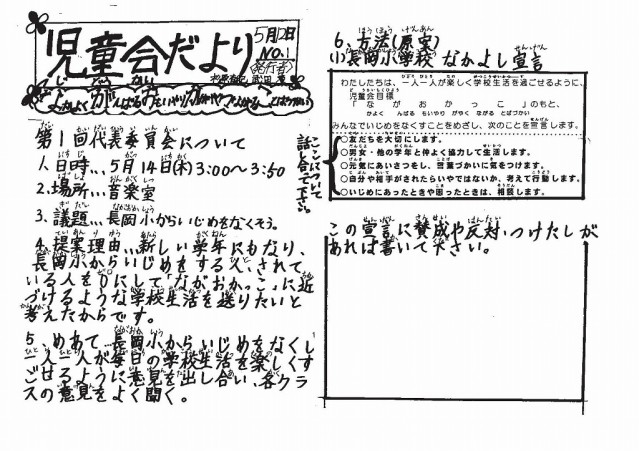 児童会だより
5月12日
NO.1
発行者
第1回代表委員会について
1.日時…5月14日(木)3:00〜3:50
2.場所…音楽室
3.議題…長岡小からいじめをなくそう。
ここについて
話し合って下さい。
4.提案理由…新しい学年にもなり、
長岡小からいじめをする人、されて
いる人を0にして「ながおかっこ」に近
づけるような学校生活を送りたいと
考えたからです。
5.めあて…長岡小からいじめをなくし
一人一人が毎日の学校生活を楽しくす
ごせるように意見を出し合い、各クラ
スの意見をよく聞く。
6.方法(原案)
(1)長岡小学校 なかよし宣言
わたしたちは、一人一人が楽しく学校生活を過ごせるように、
児童会目標
「ながおかっこ」のもと、
かよく がんばる もいやり がやく ながる とばづかい
みんなでいじめをなくすことをめざし、次のことを宣言します。
○友だちを大切にします。
○男女・他の学年と仲よく協力して生活します。
○元気にあいさつをし、言葉づかいに気をつけます。
○自分や相手がされたらいやではないか、考えて行動します。
○いじめにあったときや困ったときは、相談します。
この宣言に賛成や反対、つけたしが
あれば書いて下さい。